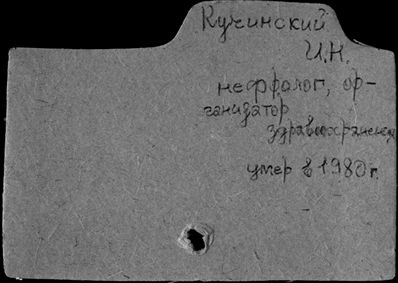 Кучинский
И.Н.
нефролог, ор-
ганизатор
здравоохранения
умер в 1980 г.